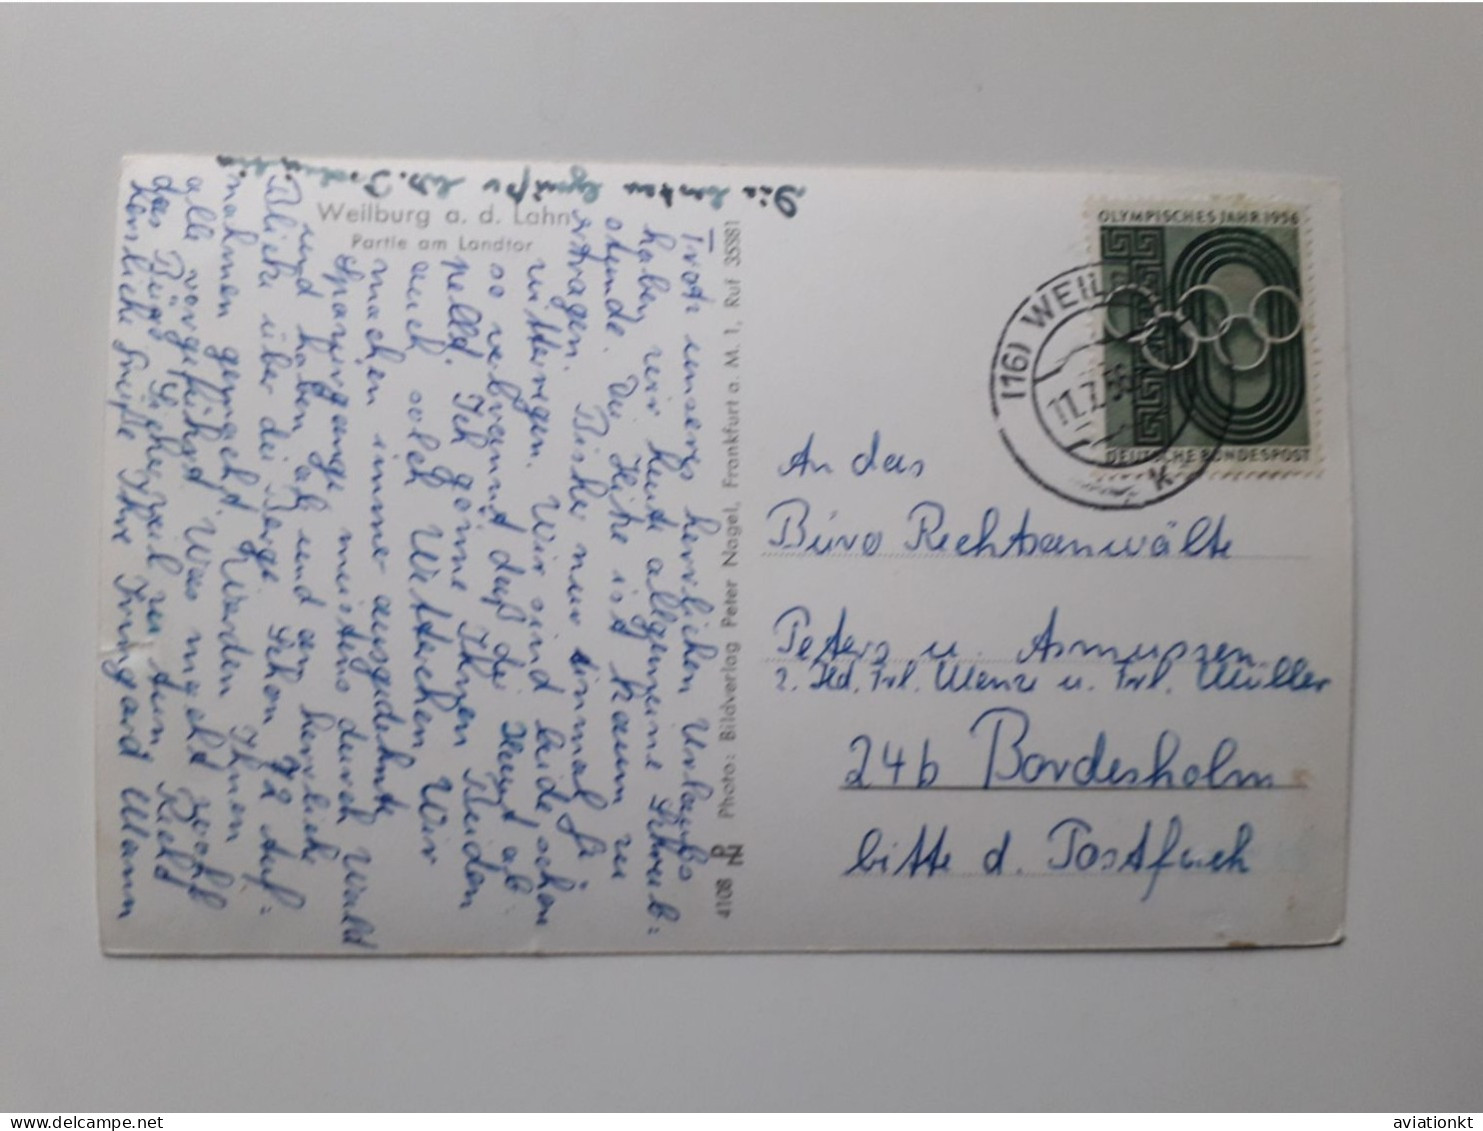 Weilburg a. d. Lahn
Partie am Landtor
Trotz unsers herrlichen Urlaubs
haben wir heute allgemeine Schreib=
stunde. Die Hitze ist kaum zu
ertragen. Bisher nur einmal
Gewitterregen. Wir sind beide schon
so verbrannt daß die Haut ab=
pellt. Ich gönne Ihnen Beiden
auch solch Wetterchen. Wir
machen immer ausgedehnte
Spaziergänge meistens durch Wald
und haben ab und an herrliche
Blicke über die Berge. Schon 72 Auf=
nahmen gemacht. Werden Ihnen
alle vorgeführt. Was macht
das Büro? Sicher viel zu tun
Herzliche Grüße Ihre Irmgard Mann
4108
Photo: Bildverlag Peter Nagel, Frankfurt a. M. 1, Ruf 35381
OLYMPISCHES JAHR 1956
DEUTSCHE BUNDESPOST
(16) WEIL
11.7.56
K
An das
Büro Rechtsanwälte
Peters u. Asmussen
z. Hd. Frl. Menze u. Frl. Müller
24b Bordesholm
bitte d. Postfach
aviationkt